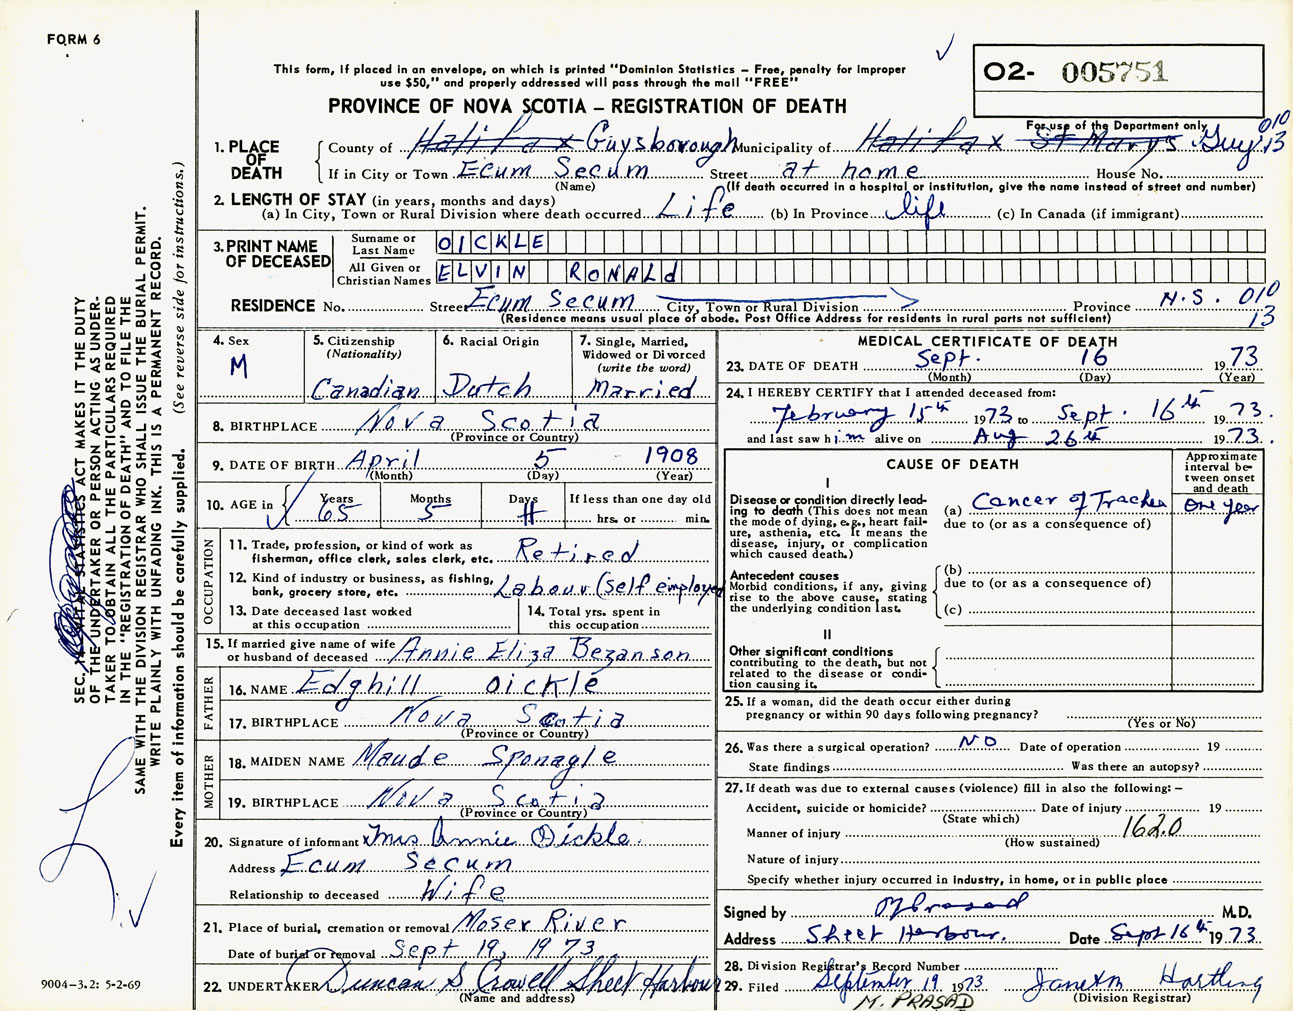 FORM 6
This form, if placed in an envelope, on which is printed "Dominion Statistics – Free, penalty for improper
use $50," and properly addressed will pass through the mail "FREE"
PROVINCE OF NOVA SCOTIA – REGISTRATION OF DEATH
02- 005751
For use of the Department only
010
13
1. PLACE OF DEATH County of Halifax Guysborough Municipality of Halifax St Marys Guy
If in City or Town Ecum Secum Street at home House No.
(Name) (If death occurred in a hospital or institution, give the name instead of street and number)
2. LENGTH OF STAY (in years, months and days)
(a) In City, Town or Rural Division where death occurred Life (b) In Province life (c) In Canada (if immigrant)
3. PRINT NAME OF DECEASED
Surname or Last Name OICKLE
All Given or Christian Names ELVIN RONALd
RESIDENCE No. Street Ecum Secum City, Town or Rural Division Province N.S. 010
13
(Residence means usual place of abode. Post Office Address for residents in rural parts not sufficient)
4. Sex M
5. Citizenship (Nationality) Canadian
6. Racial Origin Dutch
7. Single, Married, Widowed or Divorced (write the word) Married
8. BIRTHPLACE Nova Scotia
(Province or Country)
9. DATE OF BIRTH April 5 1908
(Month) (Day) (Year)
10. AGE in Years Months Days If less than one day old
65 5 11 hrs. or min.
OCCUPATION
11. Trade, profession, or kind of work as fisherman, office clerk, sales clerk, etc. Retired
12. Kind of industry or business, as fishing, bank, grocery store, etc. Labour (self employed
13. Date deceased last worked at this occupation
14. Total yrs. spent in this occupation
15. If married give name of wife or husband of deceased Annie Eliza Bezanson
FATHER
16. NAME Edghill Oickle
17. BIRTHPLACE Nova Scotia
(Province or Country)
MOTHER
18. MAIDEN NAME Maude Sponagle
19. BIRTHPLACE Nova Scotia
(Province or Country)
20. Signature of informant Mrs Annie Oickle
Address Ecum Secum
Relationship to deceased Wife
21. Place of burial, cremation or removal Moser River
Date of burial or removal Sept 19, 1973
22. UNDERTAKER Duncan S Crowell Sheet Harbour
(Name and address)
MEDICAL CERTIFICATE OF DEATH
23. DATE OF DEATH Sept. 16 1973
(Month) (Day) (Year)
24. I HEREBY CERTIFY that I attended deceased from:
February 15th 1973 to Sept. 16th 1973.
and last saw him alive on Aug 26th 1973.
CAUSE OF DEATH
Approximate interval between onset and death
I
Disease or condition directly leading to death (This does not mean the mode of dying, e.g., heart failure, asthenia, etc. It means the disease, injury, or complication which caused death.)
(a) Cancer of Trachea One year
due to (or as a consequence of)
Antecedent causes
Morbid conditions, if any, giving rise to the above cause, stating the underlying condition last.
(b)
due to (or as a consequence of)
(c)
II
Other significant conditions
contributing to the death, but not related to the disease or condition causing it.
25. If a woman, did the death occur either during pregnancy or within 90 days following pregnancy?
(Yes or No)
26. Was there a surgical operation? NO Date of operation 19
State findings Was there an autopsy?
27. If death was due to external causes (violence) fill in also the following: –
Accident, suicide or homicide? Date of injury 19
(State which)
Manner of injury 1620
(How sustained)
Nature of injury
Specify whether injury occurred in industry, in home, or in public place
Signed by M Prasad M.D.
Address Sheet Harbour. Date Sept 16th 1973
28. Division Registrar's Record Number
29. Filed September 19 1973 Janet M Hartling
(Division Registrar)
M. PRASAD
SEC. VITAL STATISTICS ACT MAKES IT THE DUTY
OF THE UNDERTAKER OR PERSON ACTING AS UNDER-
TAKER TO OBTAIN ALL THE PARTICULARS REQUIRED
IN THE "REGISTRATION OF DEATH" AND TO FILE THE
SAME WITH THE DIVISION REGISTRAR WHO SHALL ISSUE THE BURIAL PERMIT.
WRITE PLAINLY WITH UNFADING INK. THIS IS A PERMANENT RECORD.
Every item of information should be carefully supplied. (See reverse side for instructions.)
9004-3.2: 5-2-69